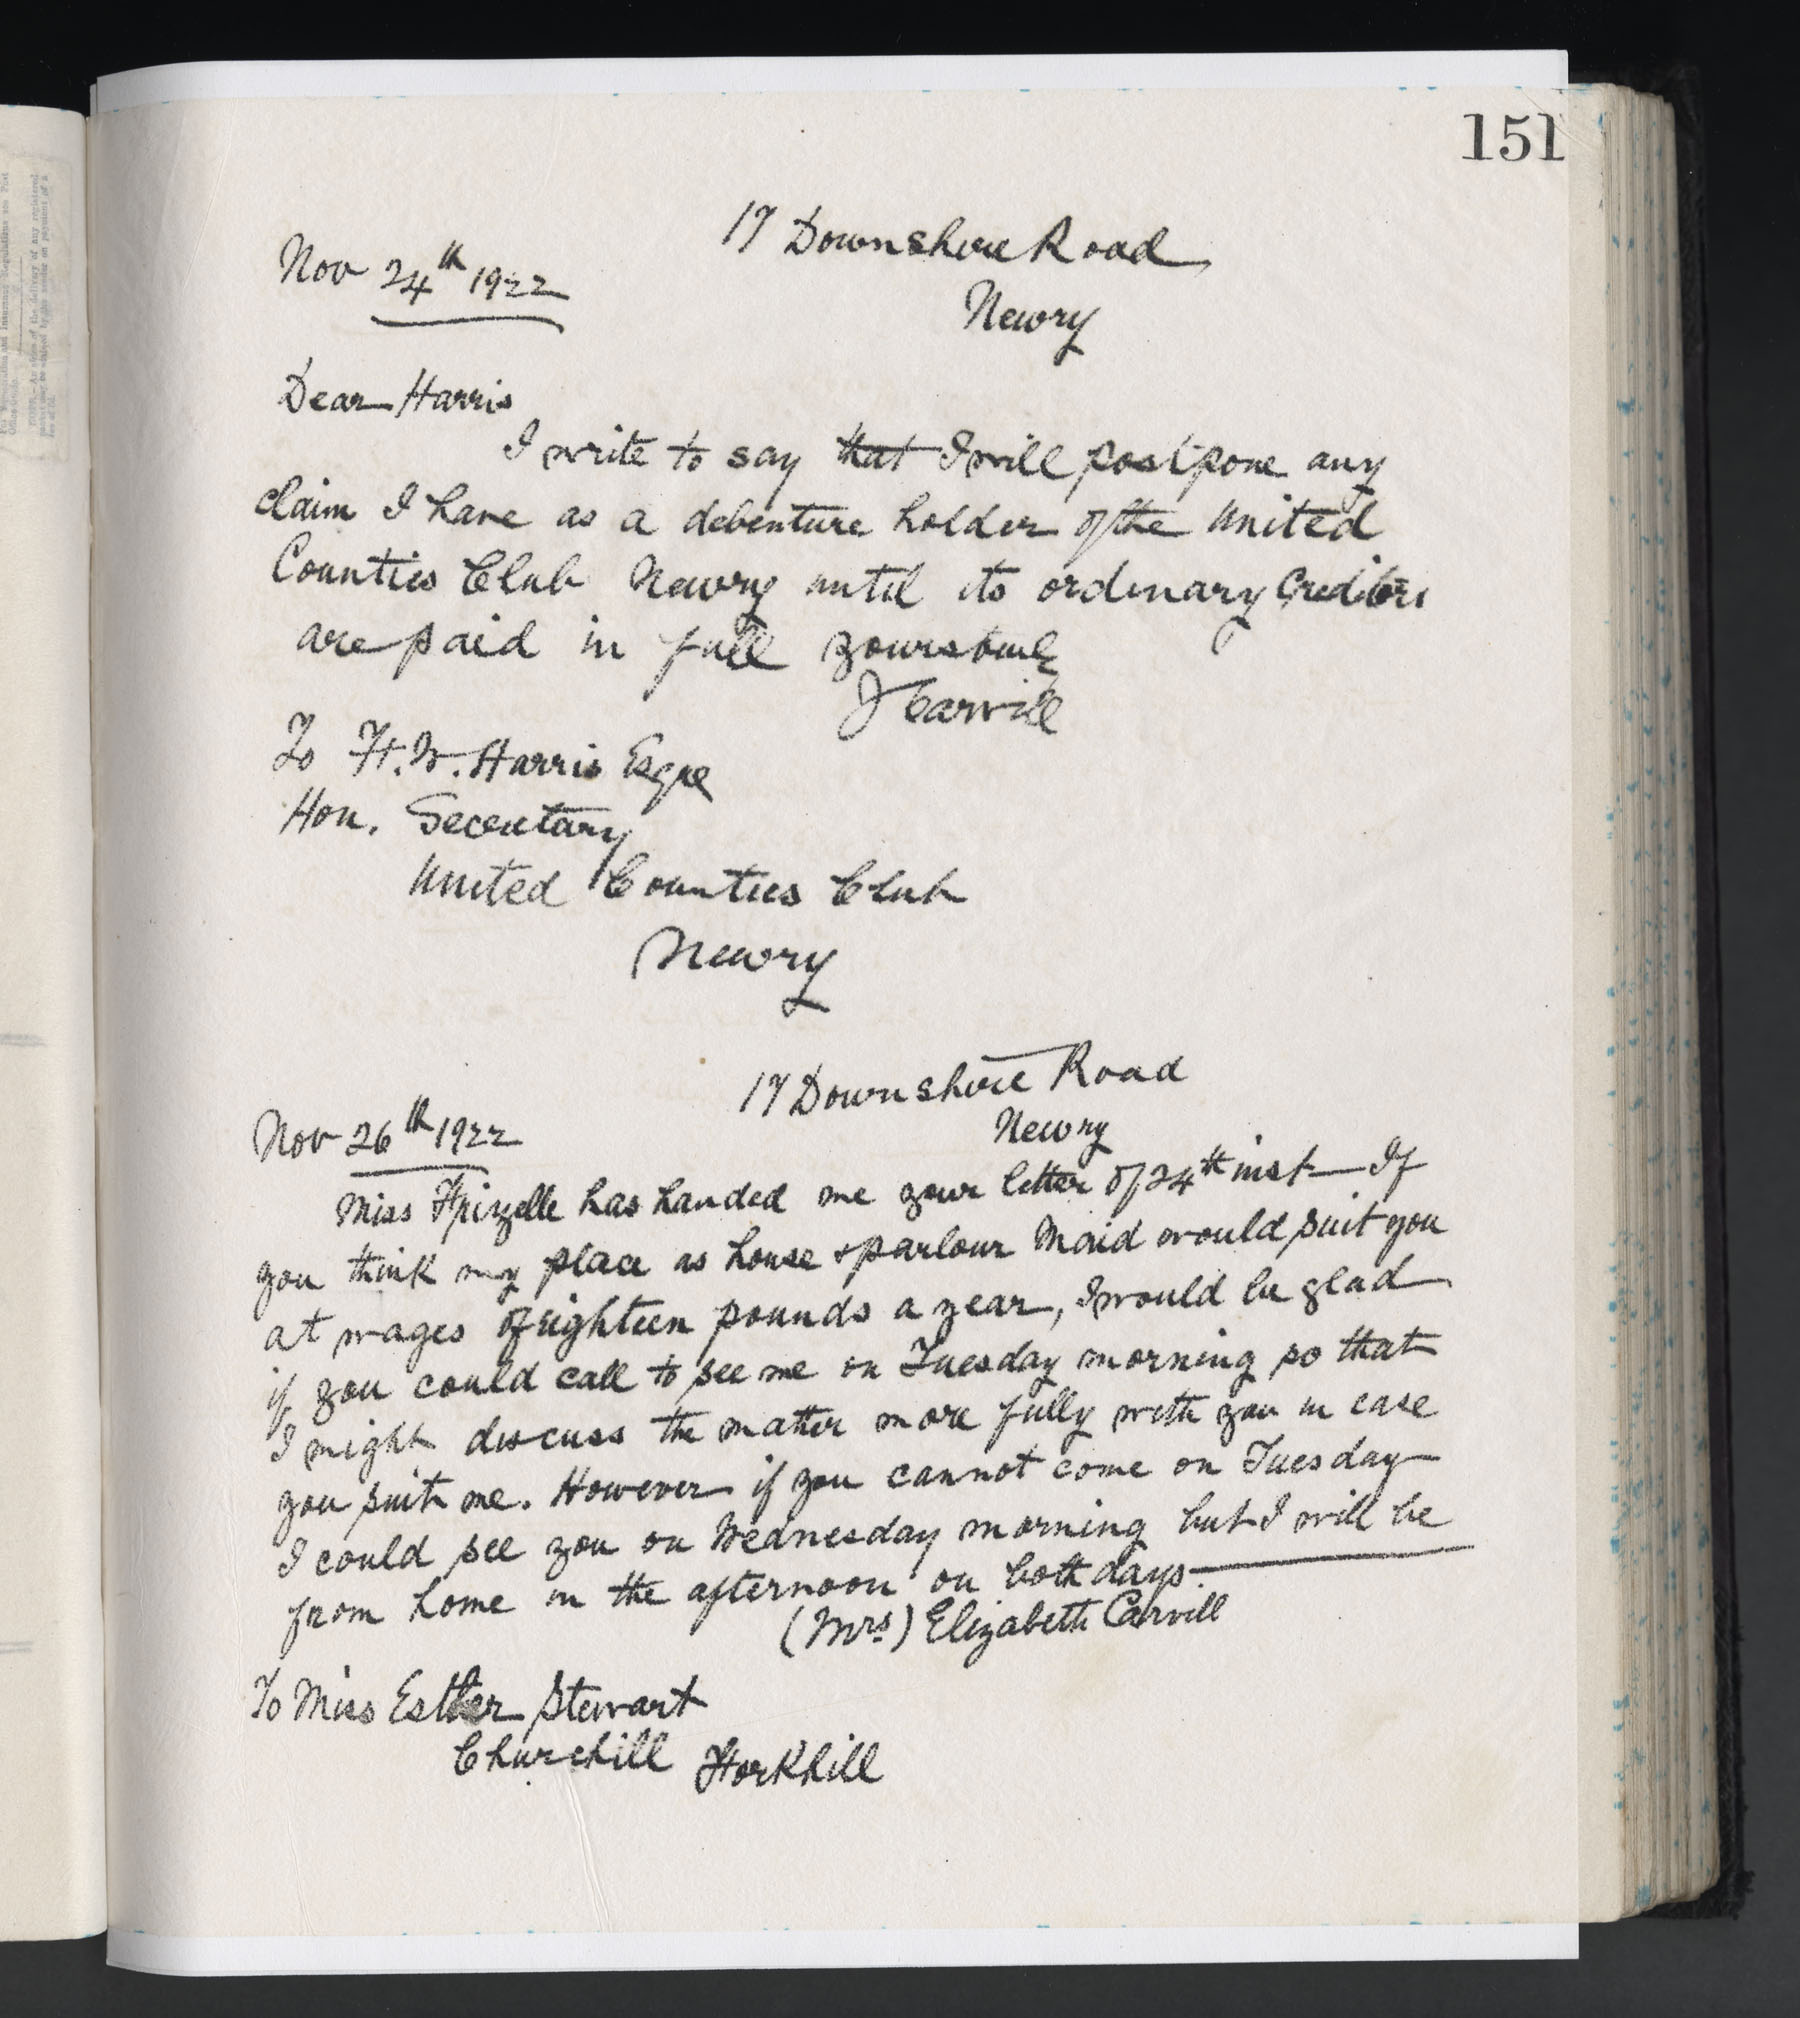 151
17 Downshire Road
Nov 24th 1922
Newry
Dear Harris
I write to say that I will postpone any
claim I have as a debenture holder of the United
Counties Club Newry until its ordinary Creditors
are paid in full yours truly
J Carvill
To H. W. Harris Esqre
Hon. Secretary
United Counties Club
Newry
17 Downshire Road
Newry
Nov 26th 1922
Miss Frizelle has handed me your letter of 24th inst — If
you think my place as house & parlour Maid would suit you
at wages of eighteen pounds a year, I would be glad
if you could call to see me on Tuesday morning so that
I might discuss the matter more fully with you in case
you suit me. However if you cannot come on Tuesday
I could see you on Wednesday morning but I will be
from home in the afternoon on both days —
(Mrs) Elizabeth Carvill
To Miss Esther Stewart
Churchill Forkhill